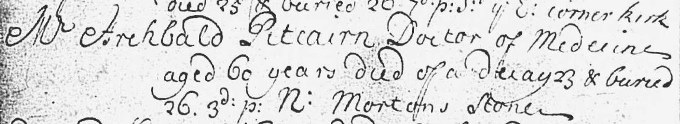 died 25 & buried 26 7d: p: S: ye E: corner kirk
Mr Archbald Pitcairn Doctor of Medecine
aged 60 years died of a decay 23 & buried
26. 3d: p: N: Mortons Stone